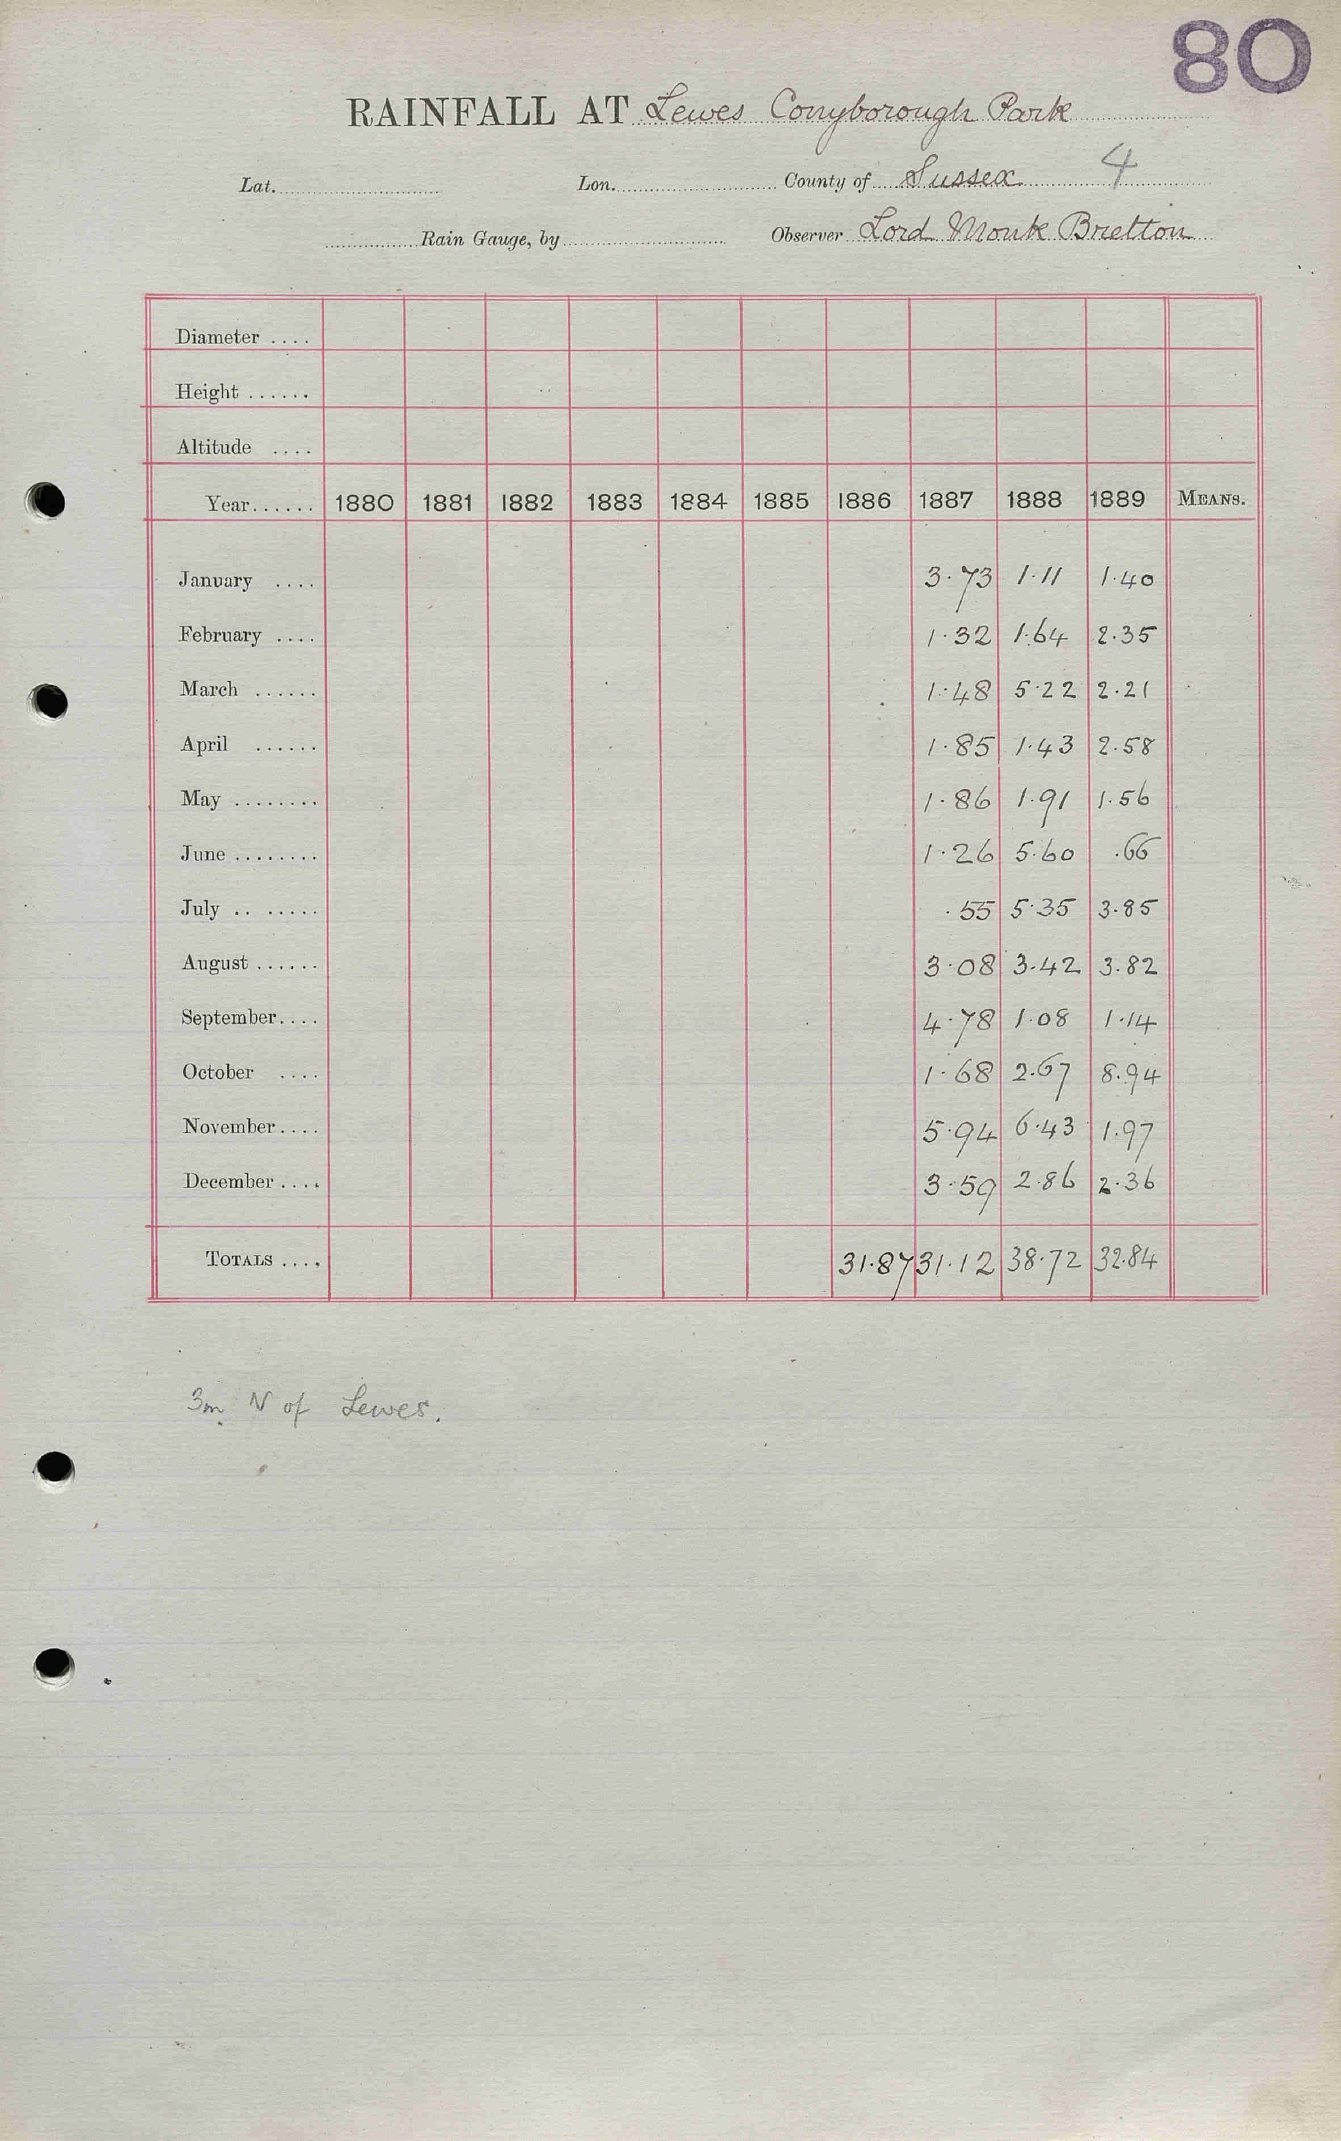 80
RAINFALL AT Lewes Conyborough Park
Lat. Lon. County of Sussex 4
Rain Gauge, by Observer Lord Monk Bretton
Diameter ....
Height ......
Altitude ....
Year...... 1880 1881 1882 1883 1884 1885 1886 1887 1888 1889 MEANS.
January .... 3.73 1.11 1.40
February .... 1.32 1.64 2.35
March ...... 1.48 5.22 2.21
April ...... 1.85 1.43 2.58
May ........ 1.86 1.91 1.56
June ........ 1.26 5.60 .66
July .. ...... .55 5.35 3.85
August ...... 3.08 3.42 3.82
September.... 4.78 1.08 1.14
October .... 1.68 2.67 8.94
November.... 5.94 6.43 1.97
December .... 3.59 2.86 2.36
TOTALS .... 31.87 31.12 38.72 32.84
3m N of Lewes.